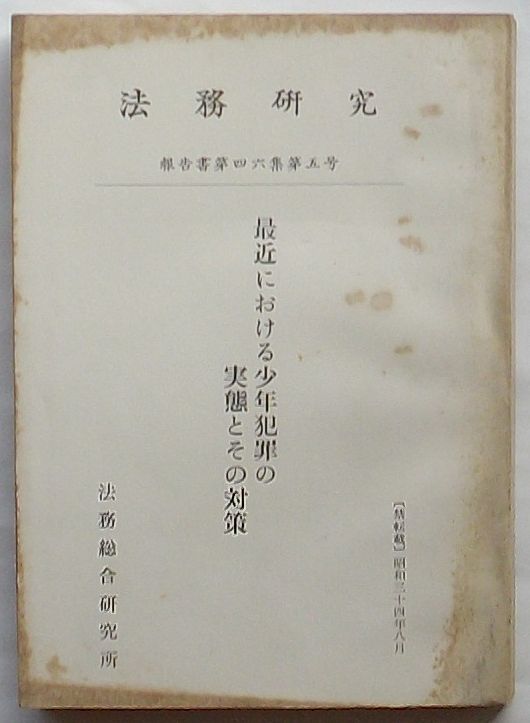 法務研究
報告書第四六集第五号
最近における少年犯罪の
実態とその対策
〔禁転載〕昭和三十四年八月
法務総合研究所